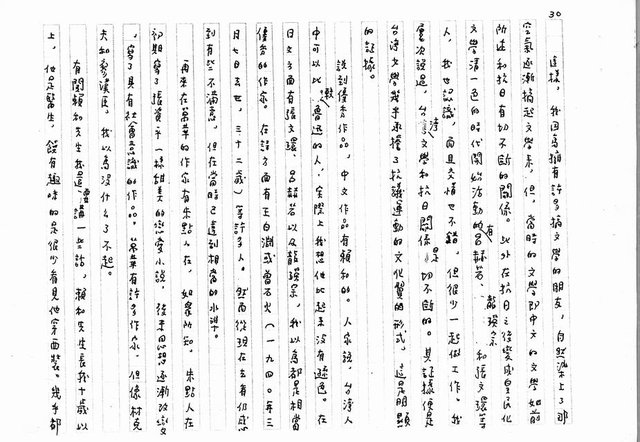 30
這樣,我因為擁有許多搞文學的朋友,自然染上了那
空氣逐漸搞起文學來,但,當時的文學即中文的文學如前
所述和抗日有切不斷的關係。此外在抗日之後變成皇民化
文學清一色的時代開始活動的有呂赫若、龍瑛宗和張文環等
人,我也認識,而且交情也不錯,但很少一起做工作。我
屢次說過,台灣文學和抗日關係是切不斷的。其証據便是
台灣文學幾乎承擔了抗議運動的文化質的形式,這是明顯
的証據。
說到優秀作品,中文作品有賴和的。人家說,台灣人
中可以比較魯迅的人,實際上我想他比起來沒有遜色。在
日文方面有張文環、呂赫若以及龍瑛宗,我以為都是相當
優秀的作家。在詩方面有王白淵或曾石火(一九四〇年三
月七日去世,三十二歲)等許多人。然而從現在去看仍感
到有些不滿意,但在當時已達到相當的水準。
再來在萬華的作家有朱點人在,如眾所知,朱點人在
初期寫了張資平一樣甜美的戀愛小說,後來思想逐漸改變
,寫了具有社會意識的作品。萬華有許多作家,但像村克
夫和廖漢臣,我以為沒什么了不起。
有關賴和先生我還要講一些話,賴和先生長我十歲以
上,他是醫生,饒有趣味的是很少看見他穿西裝。幾乎都